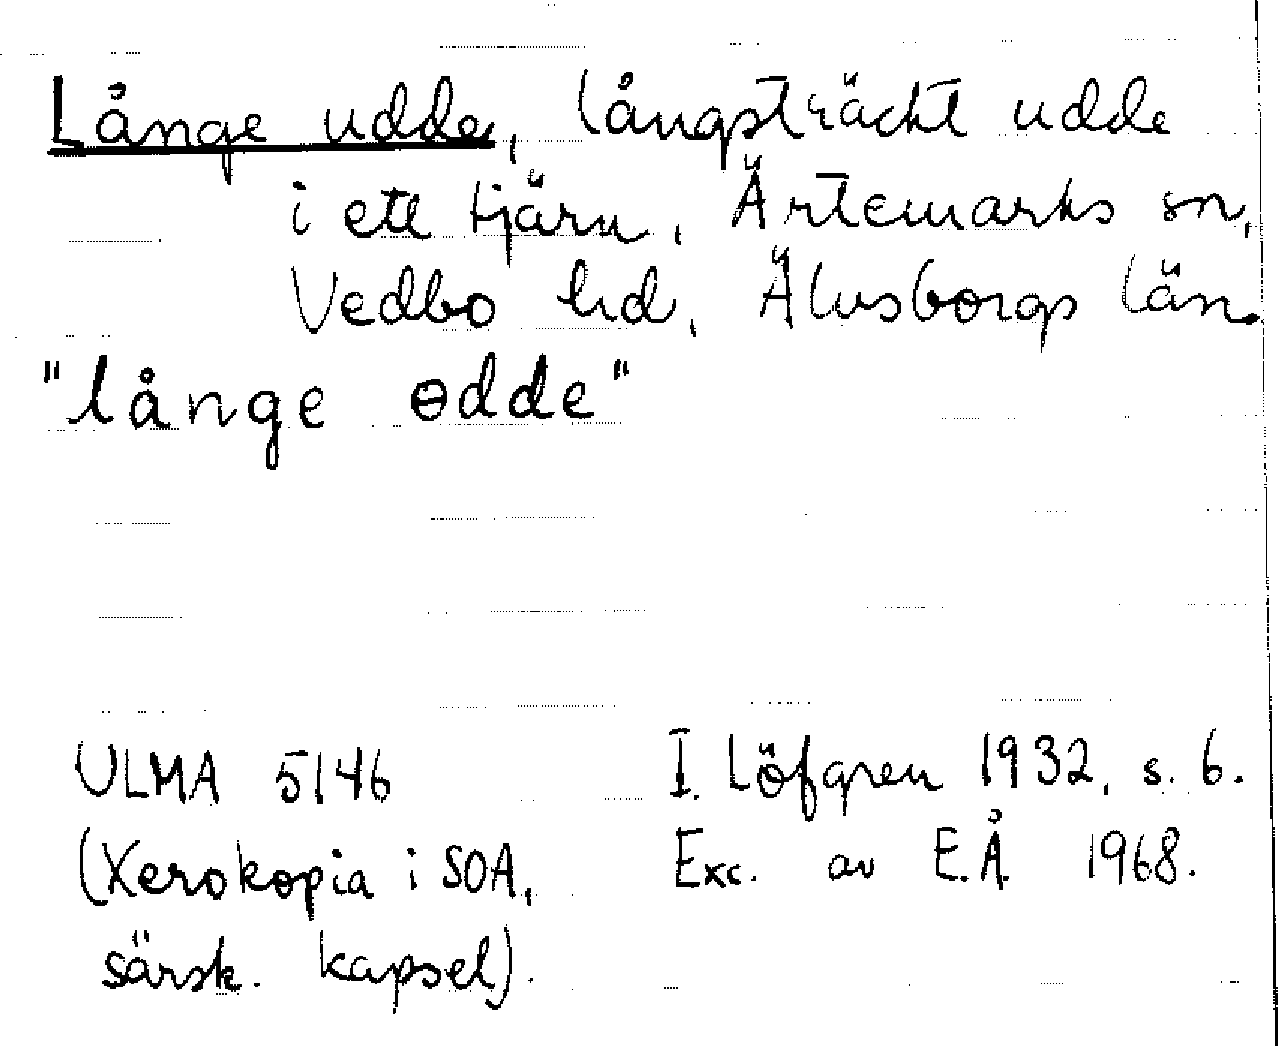 Långe udde, långsträckt udde
i ett tjärn, Ärtemarks sn,
Vedbo hd, Älvsborgs län.
"långe ɵdde"
ULMA 5146
I. Löfgren 1932, s. 6.
(Xerokopia i SOA,
Exc. av E.Å. 1968.
särsk. kapsel).